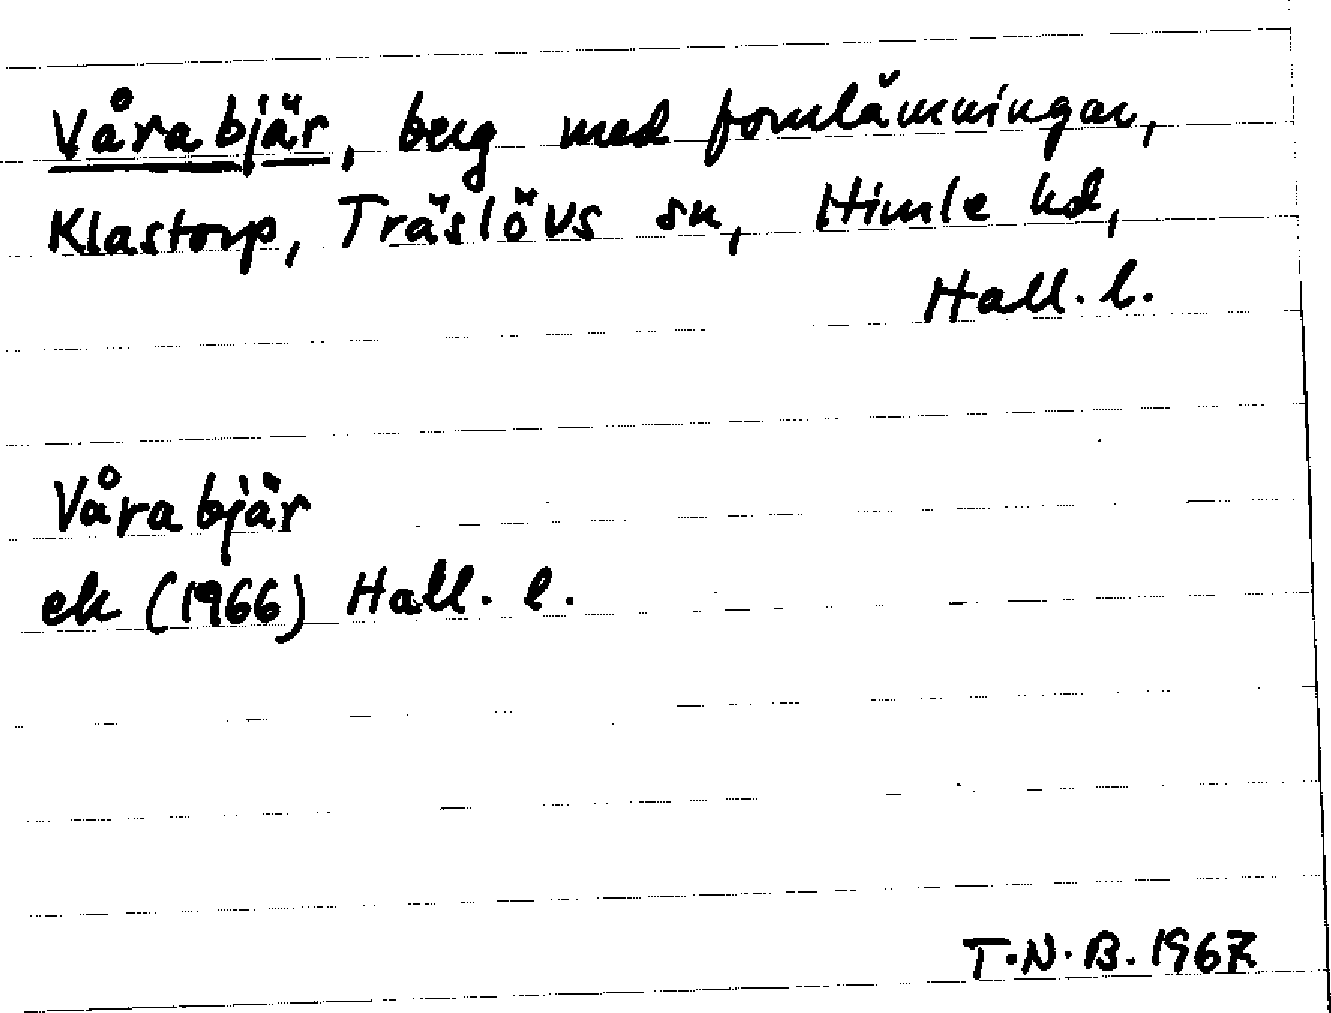 Våra bjär, berg med fornlämningar,
Klastorp, Träslövs sn, Himle hd,
Hall. l.
Våra bjär
ek (1966) Hall. l.
T.N.B. 1967